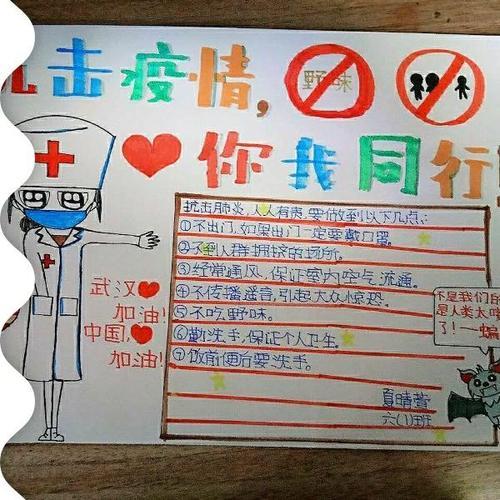 击疫情,
野味
你我同行
抗击肺炎,人人有责,要做到以下几点:
①不出门,如果出门一定要戴口罩。
②不到人群拥挤的场所。
③经常通风,保证室内空气流通。
④不传播谣言,引起大众惊恐。
⑤不吃野味。
⑥勤洗手,保证个人卫生。
⑦饭前便后要洗手。
夏晴萱
六(1)班
武汉
加油!
中国,
加油!
不是我们
是人类太
了!一蝙